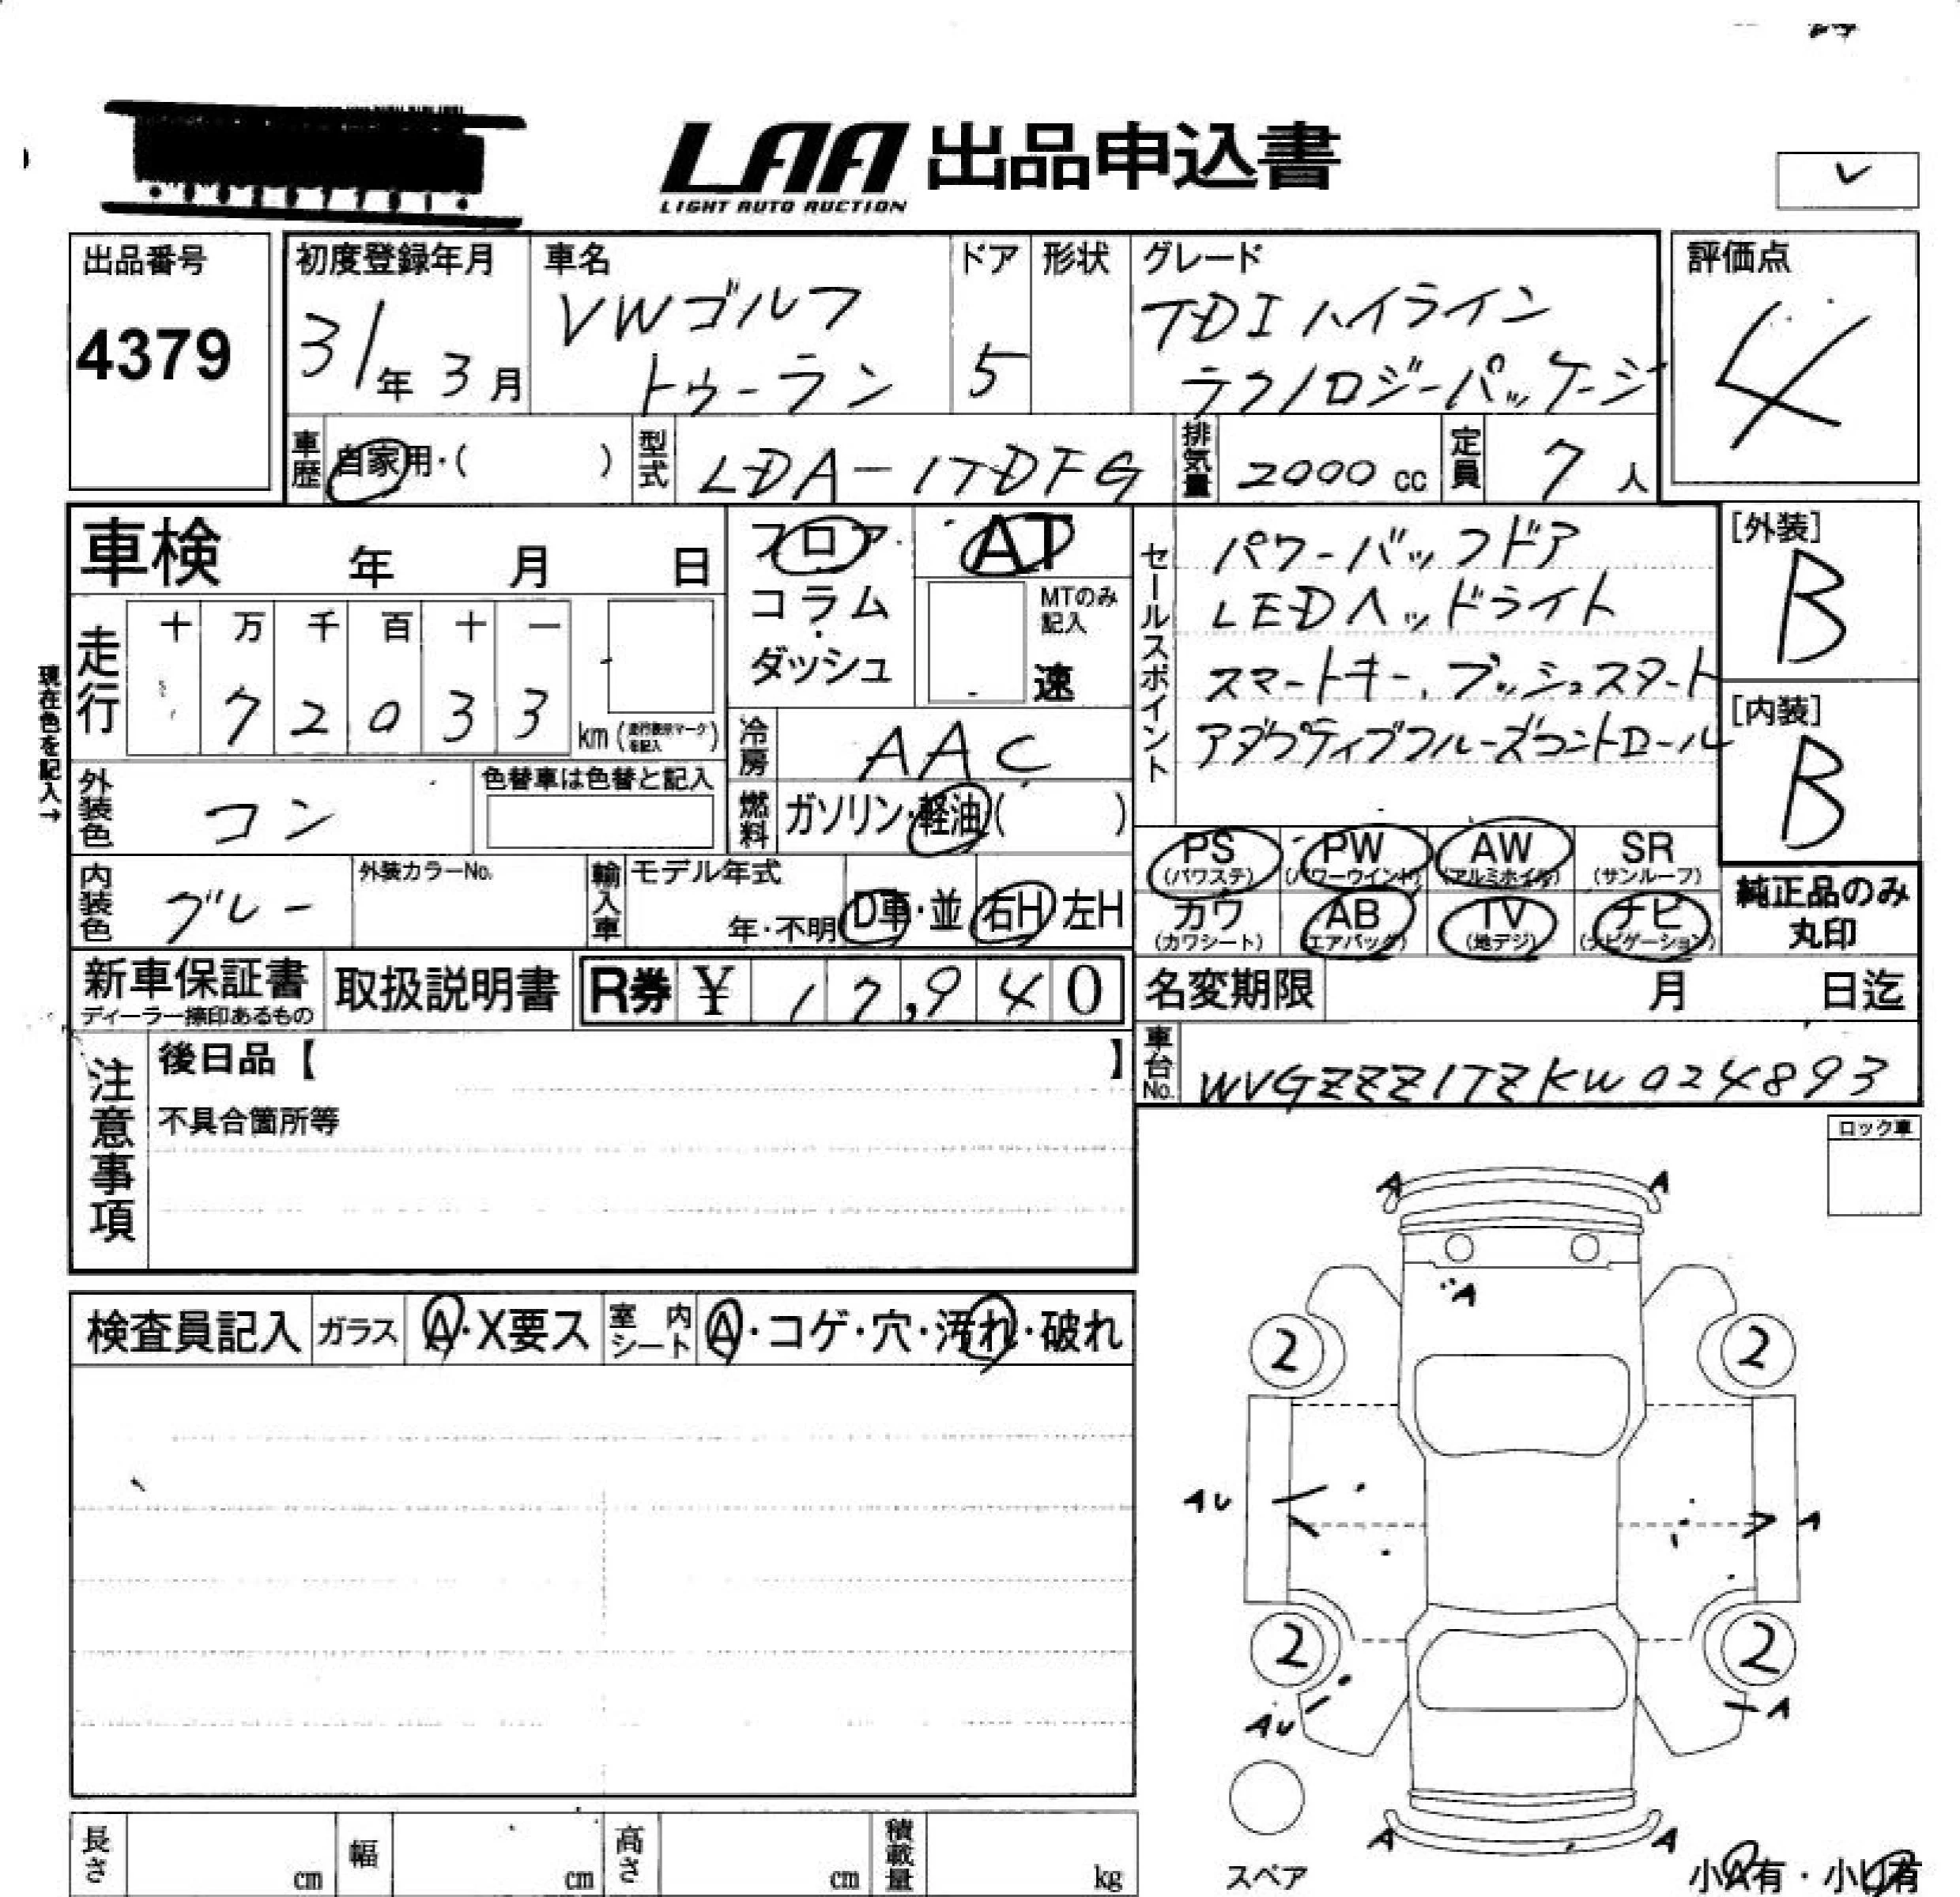 LAA 出品申込書
LIGHT AUTO AUCTION
出品番号
4379
初度登録年月
31年3月
車名
VWゴルフ
トゥーラン
ドア
5
形状
グレード
TDIハイライン
テクノロジーパッケージ
評価点
4
車歴 自家用・( )
型式 LDA-1TDFG
排気量 2000 cc
定員 7 人
車検 年 月 日
フロア
コラム
ダッシュ
AT
MTのみ記入
速
現在色を記入→
走行
十 万 千 百 十 一
7 2 0 3 3 km(走行表示マークを記入)
冷房 AAC
燃料 ガソリン・軽油( )
外装色 コン
色替車は色替と記入
内装色 グレー
外装カラーNo.
輸入車 モデル年式
年・不明 D車・並 右H 左H
セールスポイント
パワーバックドア
LEDヘッドライト
スマートキー、プッシュスタート
アダプティブクルーズコントロール
[外装]
B
[内装]
B
PS (パワステ)
PW (パワーウインド)
AW (アルミホイル)
SR (サンルーフ)
カワ (カワシート)
AB (エアバック)
TV (地デジ)
ナビ (ナビゲーション)
純正品のみ
丸印
新車保証書
ディーラー捺印あるもの
取扱説明書
R券 ¥ 17,940
名変期限 月 日迄
車台No. WVGZZZ1TZKW024893
注意事項
後日品【 】
不具合箇所等
ロック車
検査員記入 ガラス A・X要ス 室内シート A・コゲ・穴・汚れ・破れ
A A
A
2 2
AU A
2 2
AU A
スペア
A A
小A有・小U有
長さ cm 幅 cm 高さ cm 積載量 kg